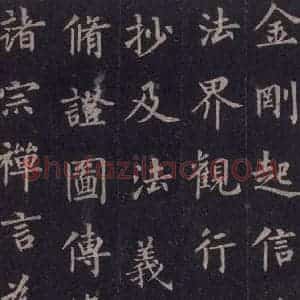 金剛起信
法界觀行
抄及法義
脩證圖傳
諸宗禪言
shufaziliao.COM